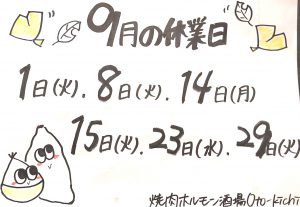 9月の休業日
1日(火).8日(火).14日(月)
15日(火).23日(水).29日(火)
焼肉ホルモン酒場Oto-kichi